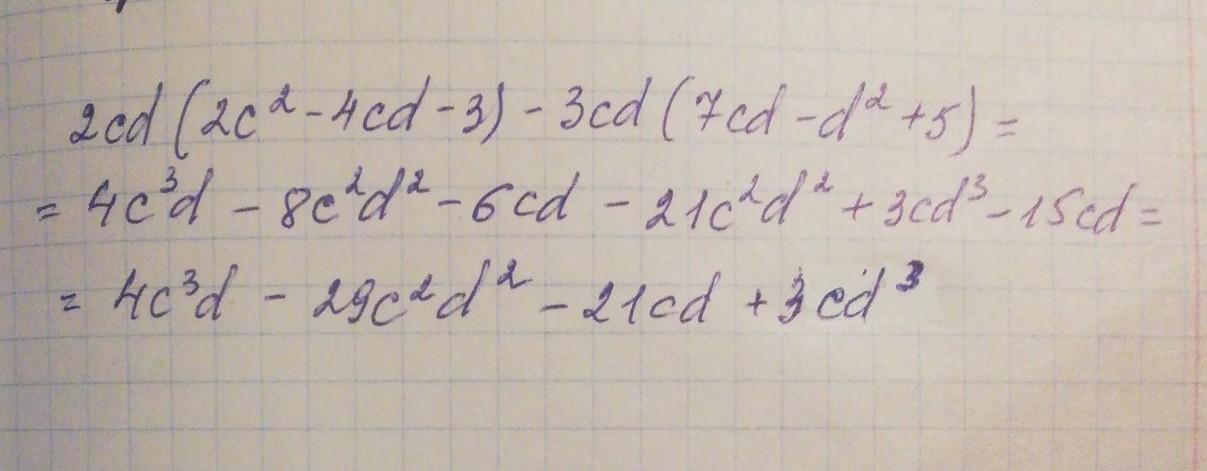 2cd (2c² - 4cd - 3) - 3cd (7cd - d² + 5) =
= 4c³d - 8c²d² - 6cd - 21c²d² + 3cd³ - 15cd =
= 4c³d - 29c²d² - 21cd + 3cd³